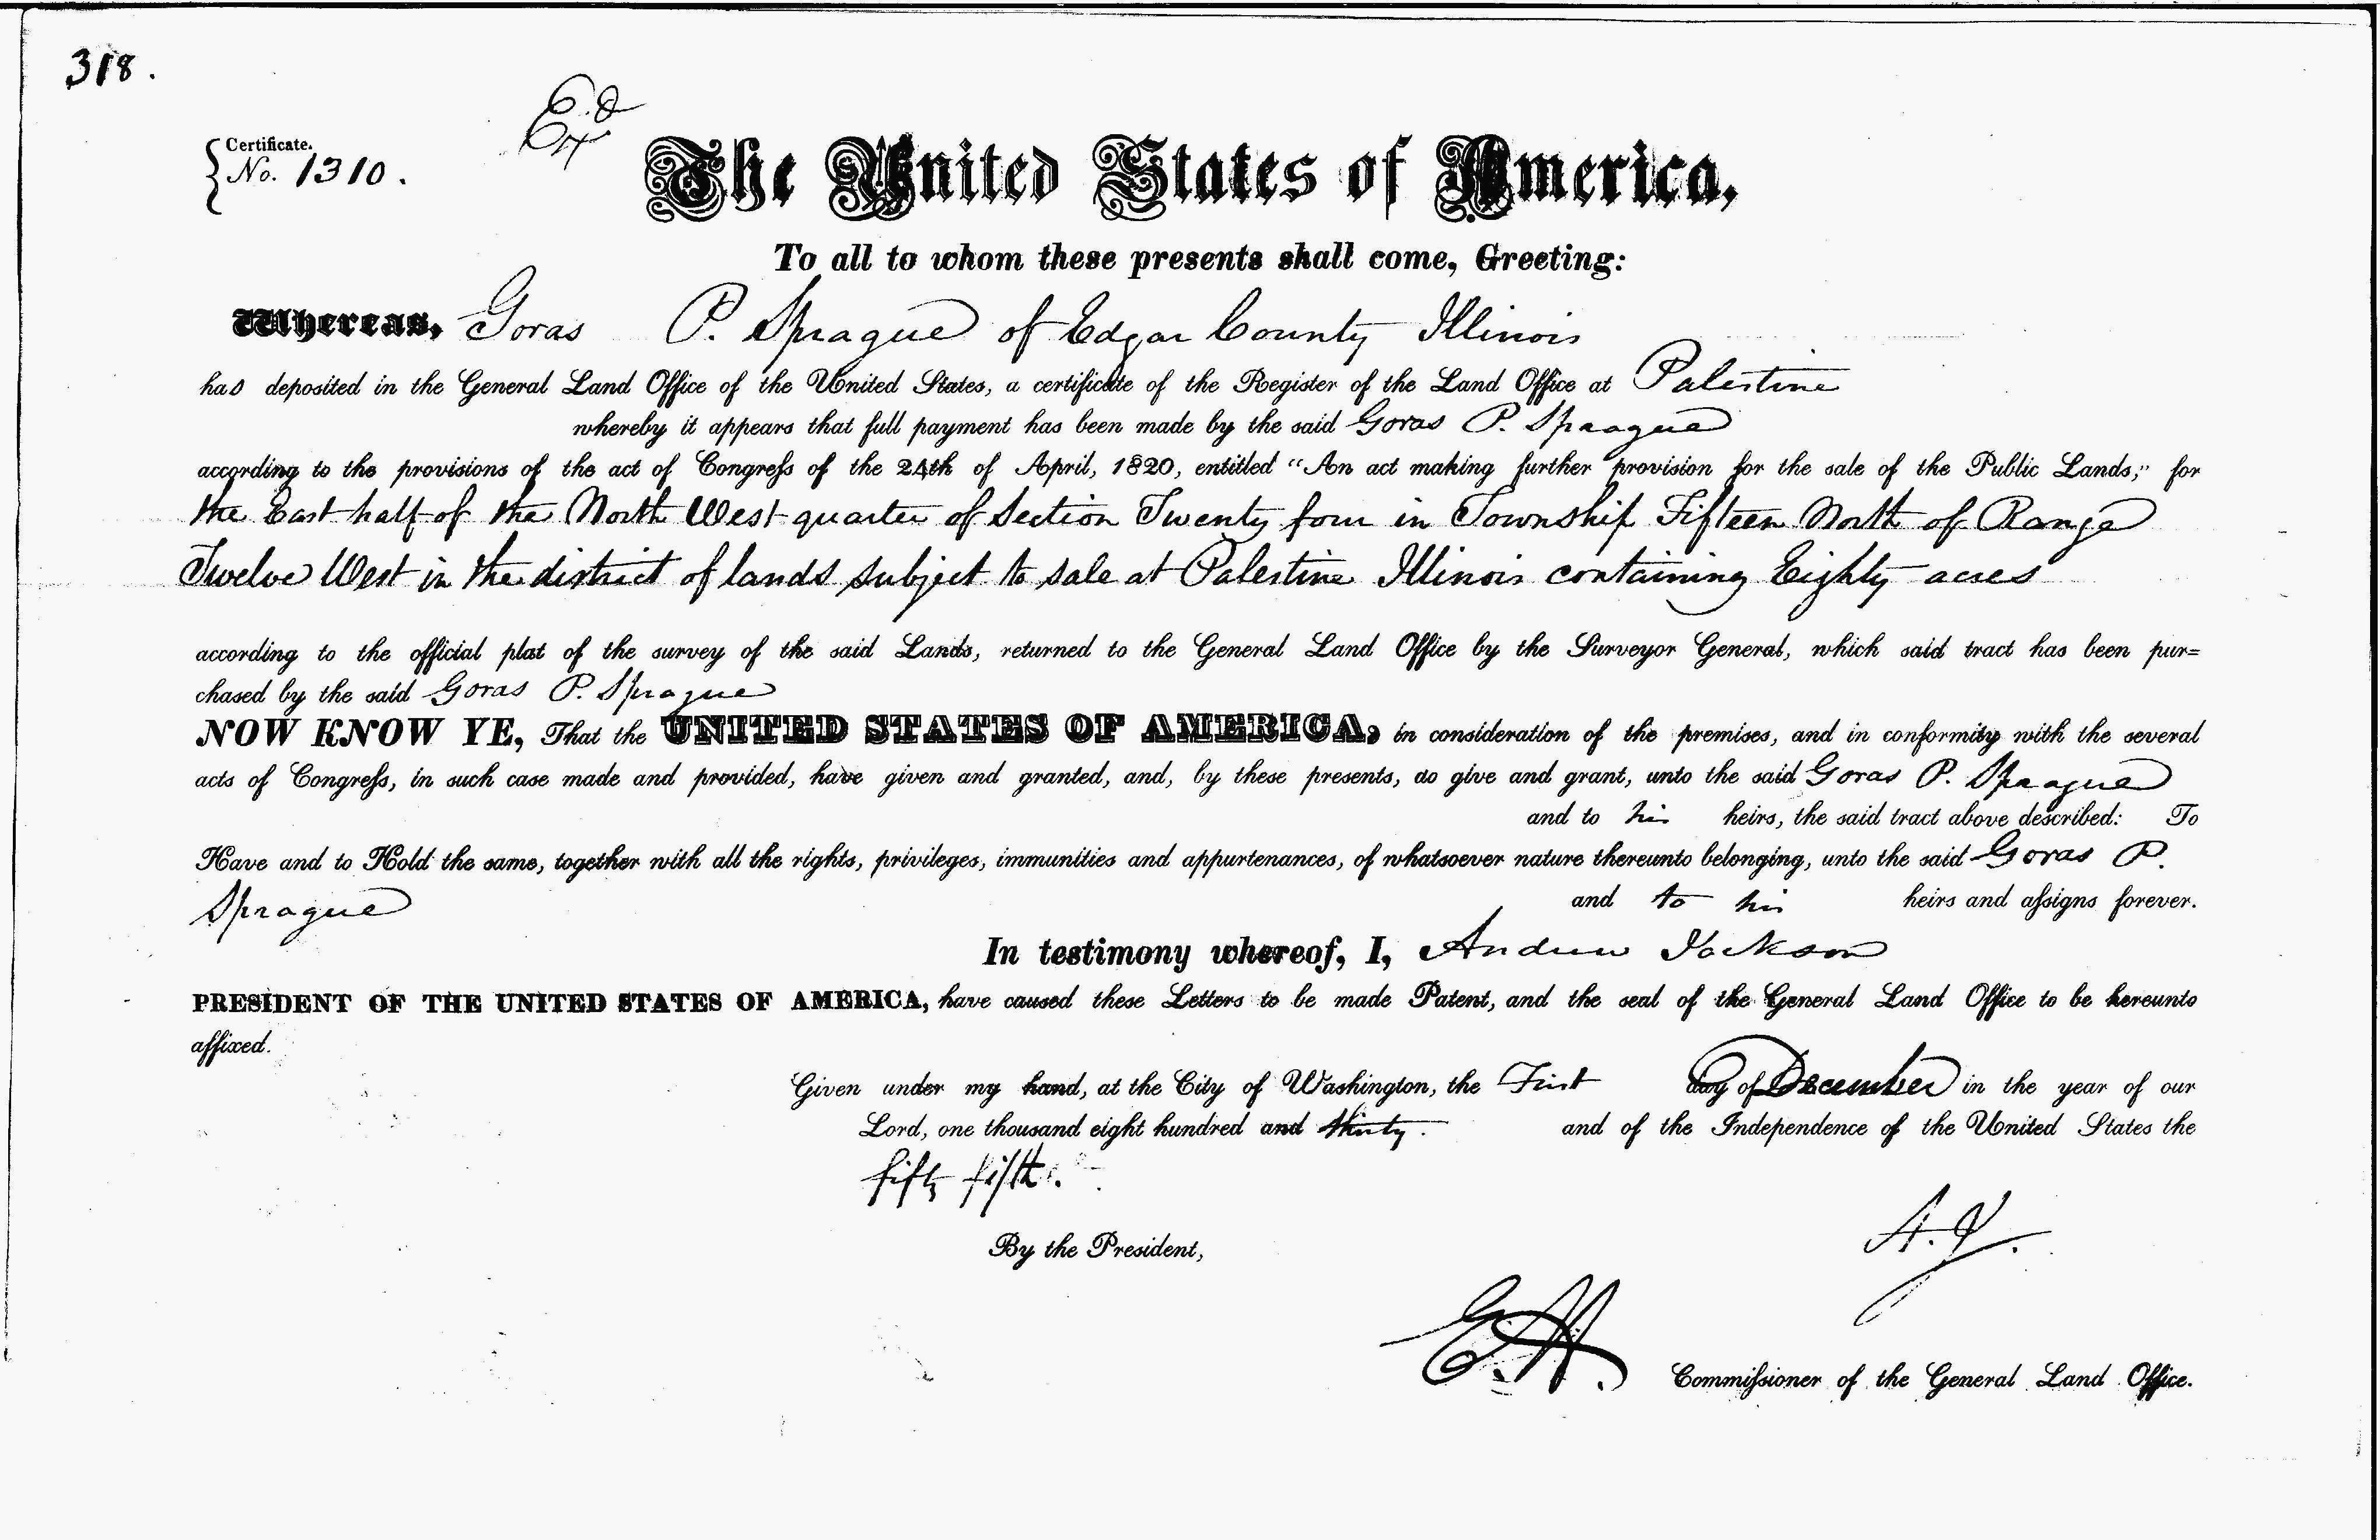 318.
Certificate.
No. 1310.
Exd
The United States of America,
To all to whom these presents shall come, Greeting:
Whereas, Goras P. Sprague of Edgar County Illinois
has deposited in the General Land Office of the United States, a certificate of the Register of the Land Office at Palestine
whereby it appears that full payment has been made by the said Goras P. Sprague
according to the provisions of the act of Congress of the 24th of April, 1820, entitled "An act making further provision for the sale of the Public Lands;" for
the East half of the North West quarter of Section Twenty four in Township Fifteen North of Range
Twelve West in the district of lands subject to sale at Palestine Illinois containing Eighty acres
according to the official plat of the survey of the said Lands, returned to the General Land Office by the Surveyor General, which said tract has been pur=
chased by the said Goras P. Sprague
NOW KNOW YE, That the UNITED STATES OF AMERICA, in consideration of the premises, and in conformity with the several
acts of Congress, in such case made and provided, have given and granted, and, by these presents, do give and grant, unto the said Goras P. Sprague
and to his heirs, the said tract above described: To
Have and to Hold the same, together with all the rights, privileges, immunities and appurtenances, of whatsoever nature thereunto belonging, unto the said Goras P.
Sprague and to his heirs and assigns forever.
In testimony whereof, I, Andrew Jackson
PRESIDENT OF THE UNITED STATES OF AMERICA, have caused these Letters to be made Patent, and the seal of the General Land Office to be hereunto
affixed.
Given under my hand, at the City of Washington, the First day of December in the year of our
Lord, one thousand eight hundred and thirty. and of the Independence of the United States the
fifty fifth.
A.J.
By the President,
E.H. Commissioner of the General Land Office.